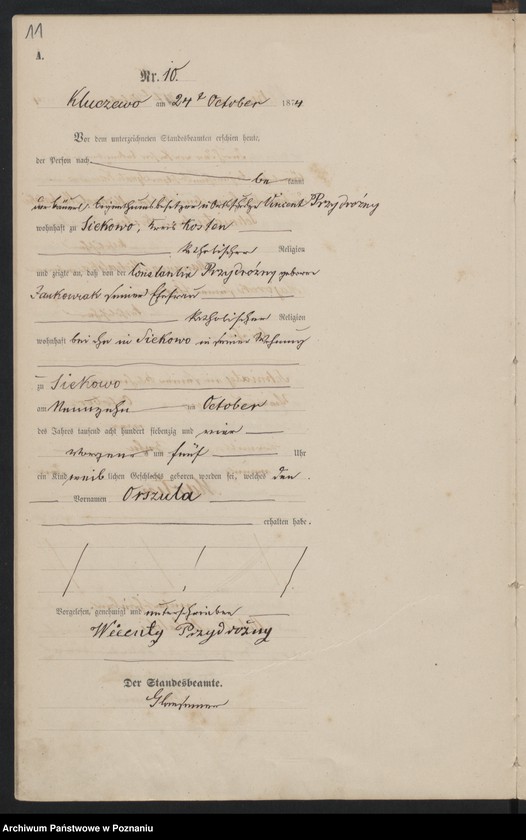 11
A.
Nr. 10.
Kluczewo am 24t October 1874
Vor dem unterzeichneten Standesbeamten erschien heute,
der Person nach
be kannt
der Vincent Przydrózny
wohnhaft zu Siekowo, Kreis Kosten
katholischer Religion
und zeigte an, daß von der Constantia Przydrózny geborene
Jankowiak seiner Ehefrau
katholischer Religion
wohnhaft bei ihm in Siekowo in seiner Wohnung
zu Siekowo
am Neunzehn ten October
des Jahres tausend acht hundert siebenzig und vier
um fünf Uhr
ein Kind weib lichen Geschlechts geboren worden sei, welches den
Vornamen Orszula
erhalten habe.
Vorgelesen, genehmigt und unterschrieben
Wicenty Przydrożny
Der Standesbeamte.
Archiwum Państwowe w Poznaniu